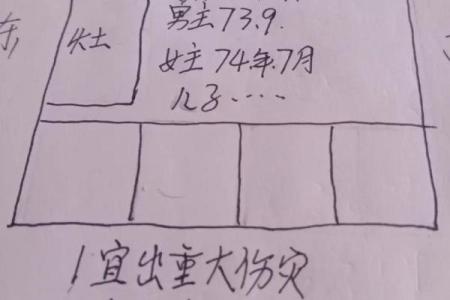 男主73.9.
东
灶
女主74年7月
儿子·····
1宜出重大伤灾